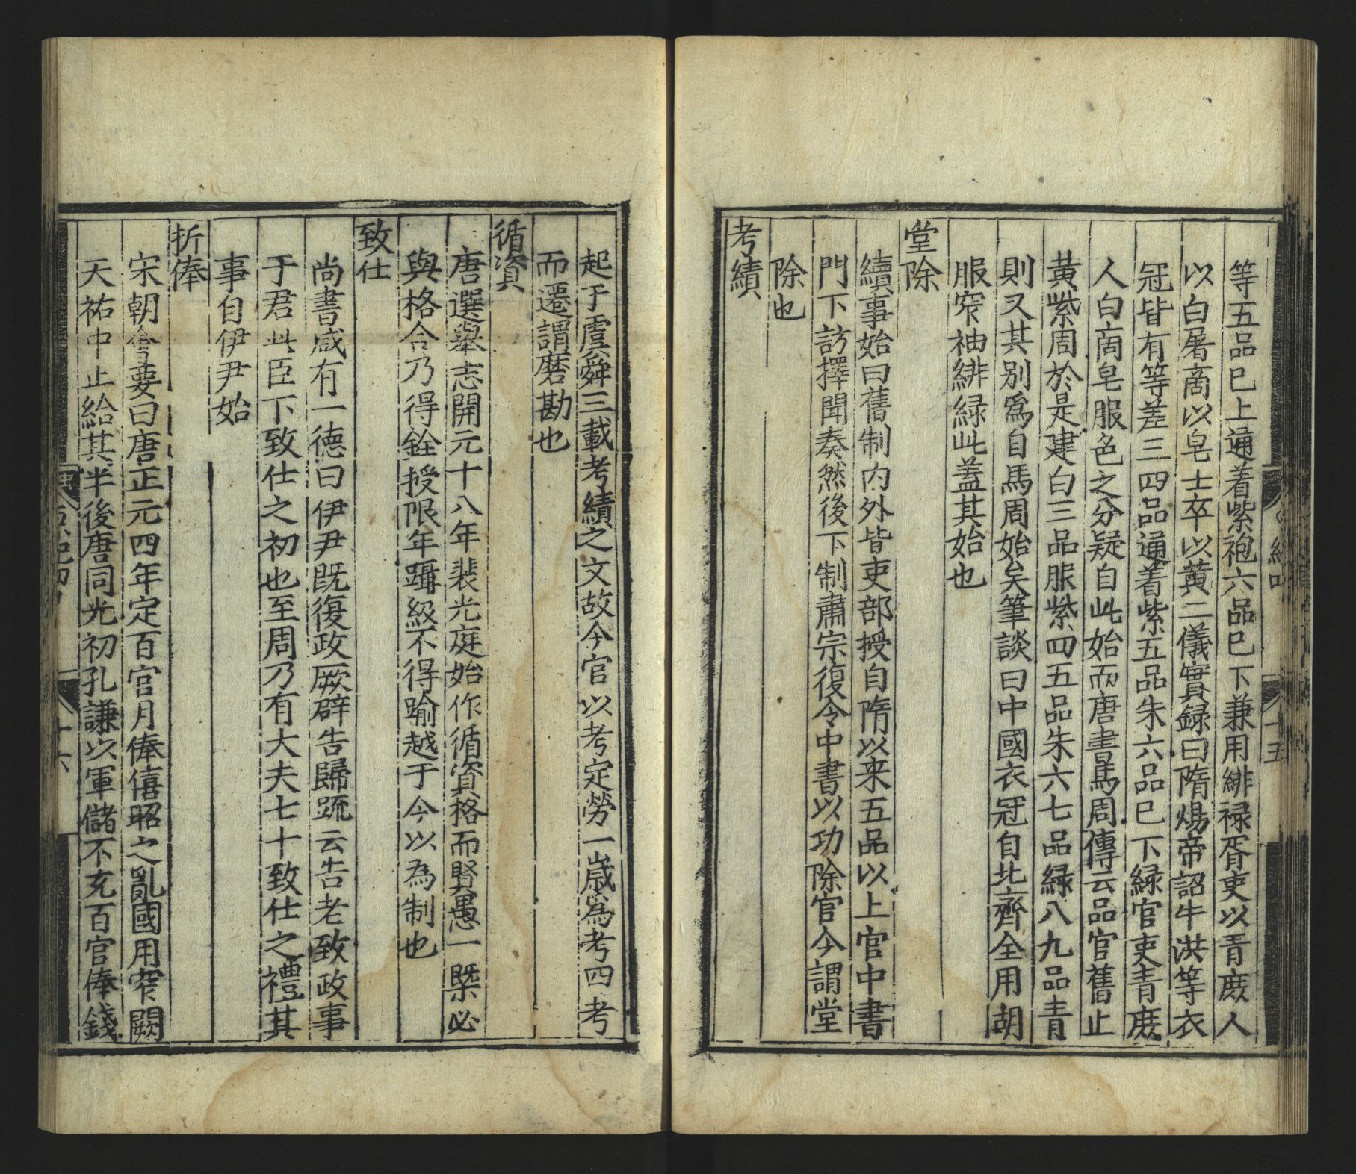 等五品巳上通着紫袍六品巳下兼用緋禄胥吏以青庻人
以白屠商以皂士卒以黄二儀實録曰隋煬帝詔牛洪等衣
冠皆有等差三四品通着紫五品朱六品巳下緑官吏青庻
人白商皂服色之分疑自此始而唐書馬周傳云品官舊止
黄紫周於是建白三品服紫四五品朱六七品緑八九品青
則又其別爲自馬周始矣筆談曰中國衣冠自北齊全用胡
服窄袖緋緑此蓋其始也
堂除
續事始曰舊制内外皆吏部授自隋以来五品以上官中書
門下訪擇聞奏然後下制肅宗復令中書以功除官今謂堂
除也
考績
起于虞舜三載考績之文故今官以考定勞一歲爲考四考
而遷謂磨勘也
循資
唐選舉志開元十八年裴光庭始作循資格而賢愚一槩必
與格合乃得銓授限年躡級不得踰越于今以為制也
致仕
尚書咸有一德曰伊尹旣復政厥辟告歸䟽云告老致政事
于君此臣下致仕之初也至周乃有大夫七十致仕之禮其
事自伊尹始
折俸
宋朝會要曰唐正元四年定百官月俸僖昭之亂國用窄闕
天祐中止給其半後唐同光初孔謙以軍儲不充百官俸錢
十六